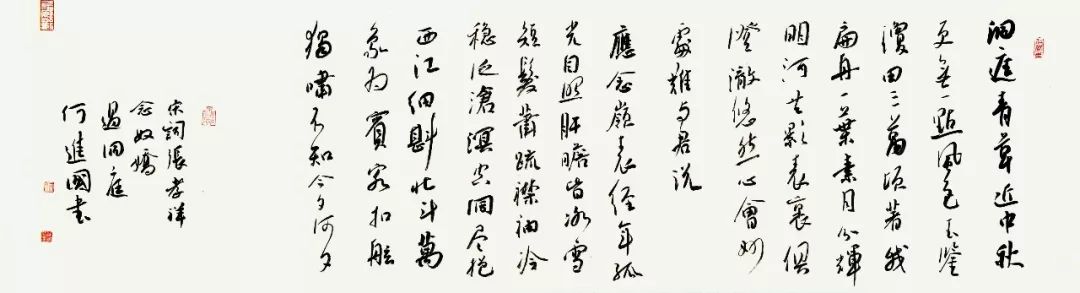 洞庭青草近中秋
更無一點風色玉鑒
瓊田三萬頃著我
扁舟一葉素月分輝
明河共影表裏俱
澄澈悠然心會妙
處難与君說
應念嶺表經年孤
光自照肝膽皆冰雪
短髮蕭疏襟袖冷
穩泛滄溟空闊盡挹
西江細斟北斗萬
象為賓客扣舷
獨嘯不知今夕何夕
宋詞張孝祥
念奴嬌
過洞庭
何進國書